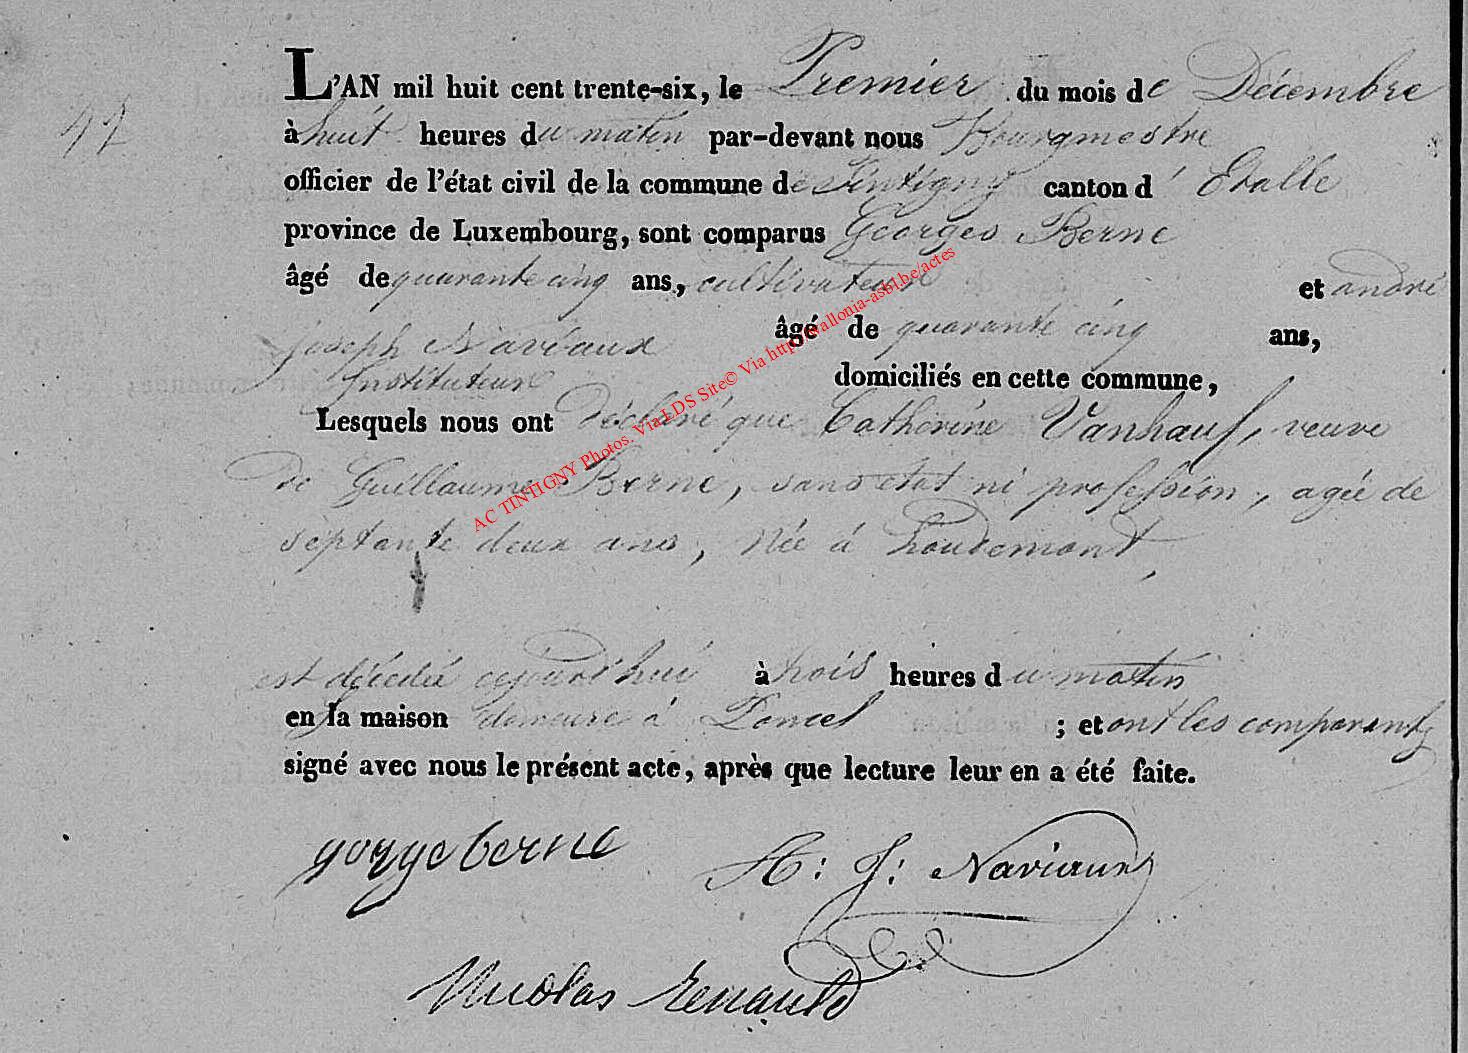 47
L'AN mil huit cent trente-six, le Premier du mois de Décembre
à huit heures du matin par-devant nous Bourgmestre
officier de l'état civil de la commune de Tintigny canton d' Etalle
province de Luxembourg, sont comparus Georges Berne
âgé de quarante cinq ans, cultivateur et andré
joseph Naviaux âgé de quarante cinq ans,
Instituteur domiciliés en cette commune,
Lesquels nous ont déclaré que Catherine Vanhauf, veuve
de Guillaume Berne, sans etat ni profession, agée de
septante deux ans, Née à houdemont,
est décédée aujourd'hui à trois heures du matin
en la maison demeure à Poncel ; et ont les comparants
signé avec nous le présent acte, après que lecture leur en a été faite.
gorge berne A: J: Naviaux
Nicolas Renauld
AC TINTIGNY Photos. Via LDS Site© Via http://wallonia-asbl.be/actes